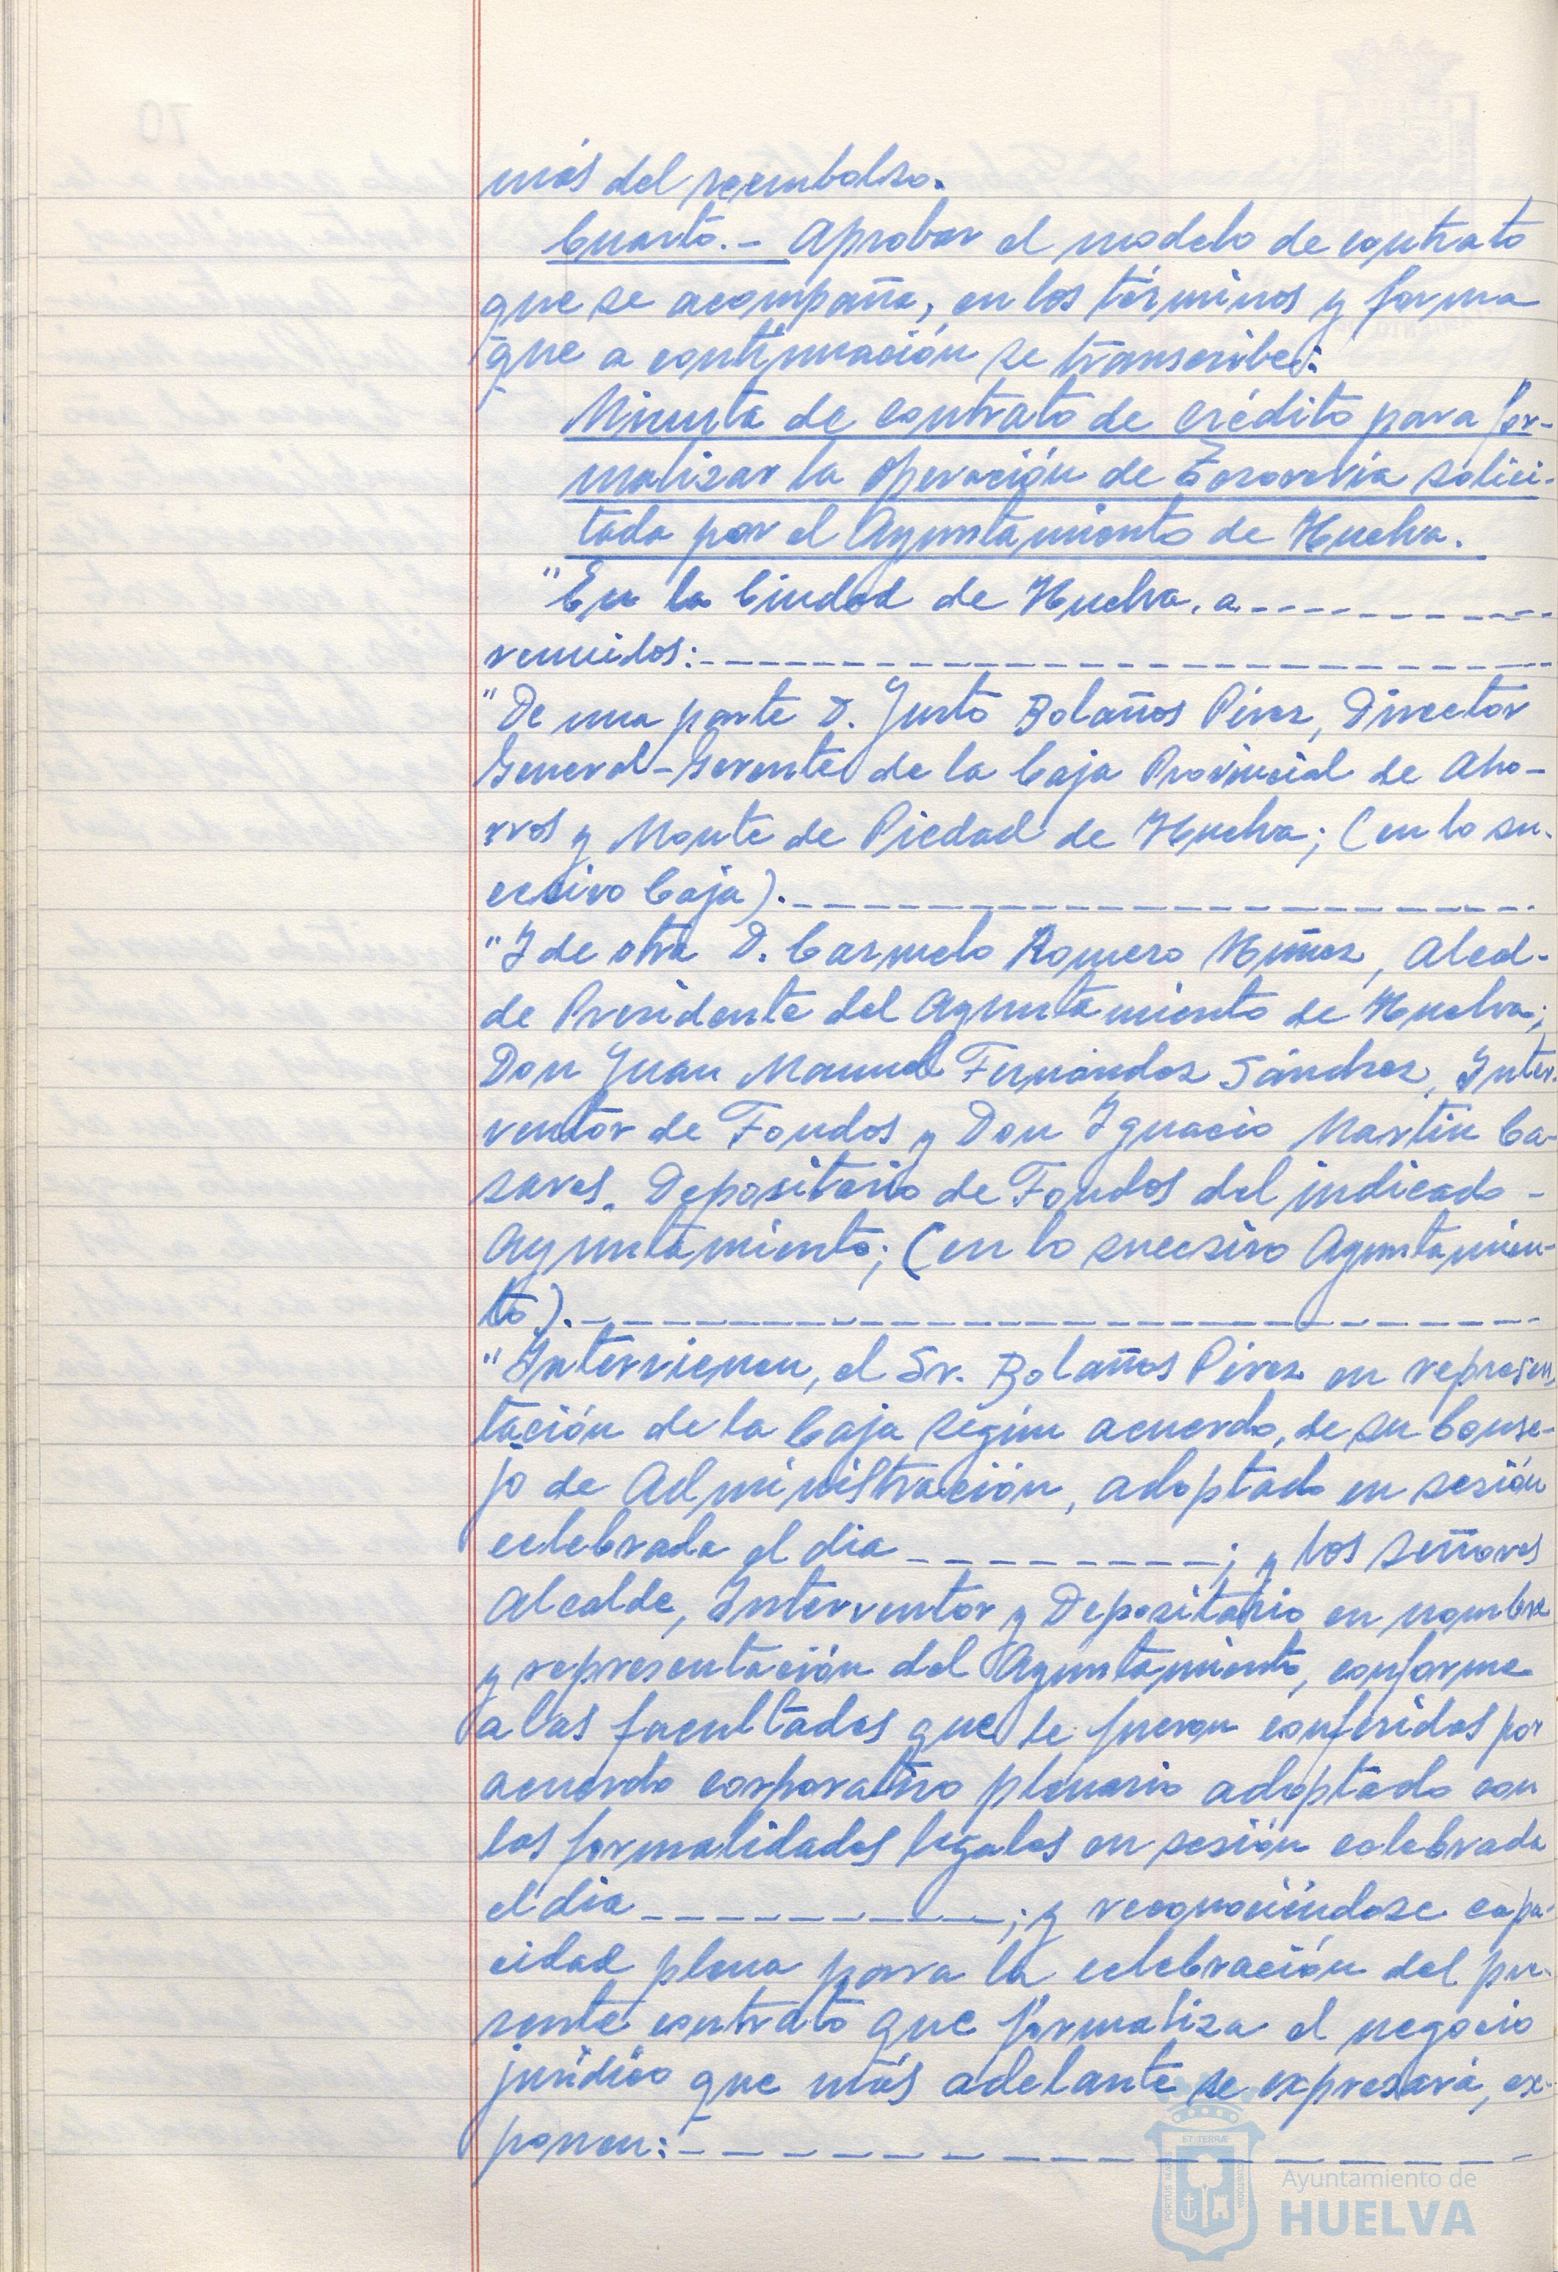 más del reembolso.
Cuarto.- Aprobar el modelo de contrato
que se acompaña, en los términos y forma
que a continuación se transcribe:
Minuta de contrato de crédito para for-
malizar la operación de Tesorería solici-
tada por el Ayuntamiento de Huelva.
"En la Ciudad de Huelva, a
reunidos:
"De una parte D. Justo Bolaños Pérez, Director
General-Gerente de la Caja Provincial de Aho-
rros y Monte de Piedad de Huelva; (en lo su-
cesivo Caja).
"Y de otra D. Carmelo Romero Núñez, Alcal-
de Presidente del Ayuntamiento de Huelva;
Don Juan Manuel Fernández Sánchez, Inter-
ventor de Fondos y Don Ignacio Martín Ca-
sares, Depositario de Fondos del indicado -
Ayuntamiento; (en lo sucesivo Ayuntamien-
to).
"Intervienen, el Sr. Bolaños Pérez en represen-
tación de la Caja según acuerdo, de su Conse-
jo de Administración, adoptado en sesión
celebrada el dia ; y los señores
Alcalde, Interventor y Depositario en nombre
y representación del Ayuntamiento, conforme
a las facultades que le fueron conferidas por
acuerdo corporativo plenario adoptado con
las formalidades legales en sesión celebrada
el dia ; y reconociéndose capa-
cidad plena para la celebración del pre-
sente contrato que formaliza el negocio
jurídico que más adelante se expresará, ex-
ponen:
ET TERRAE
PORTUS MARIS
CUSTODIA
Ayuntamiento de
HUELVA